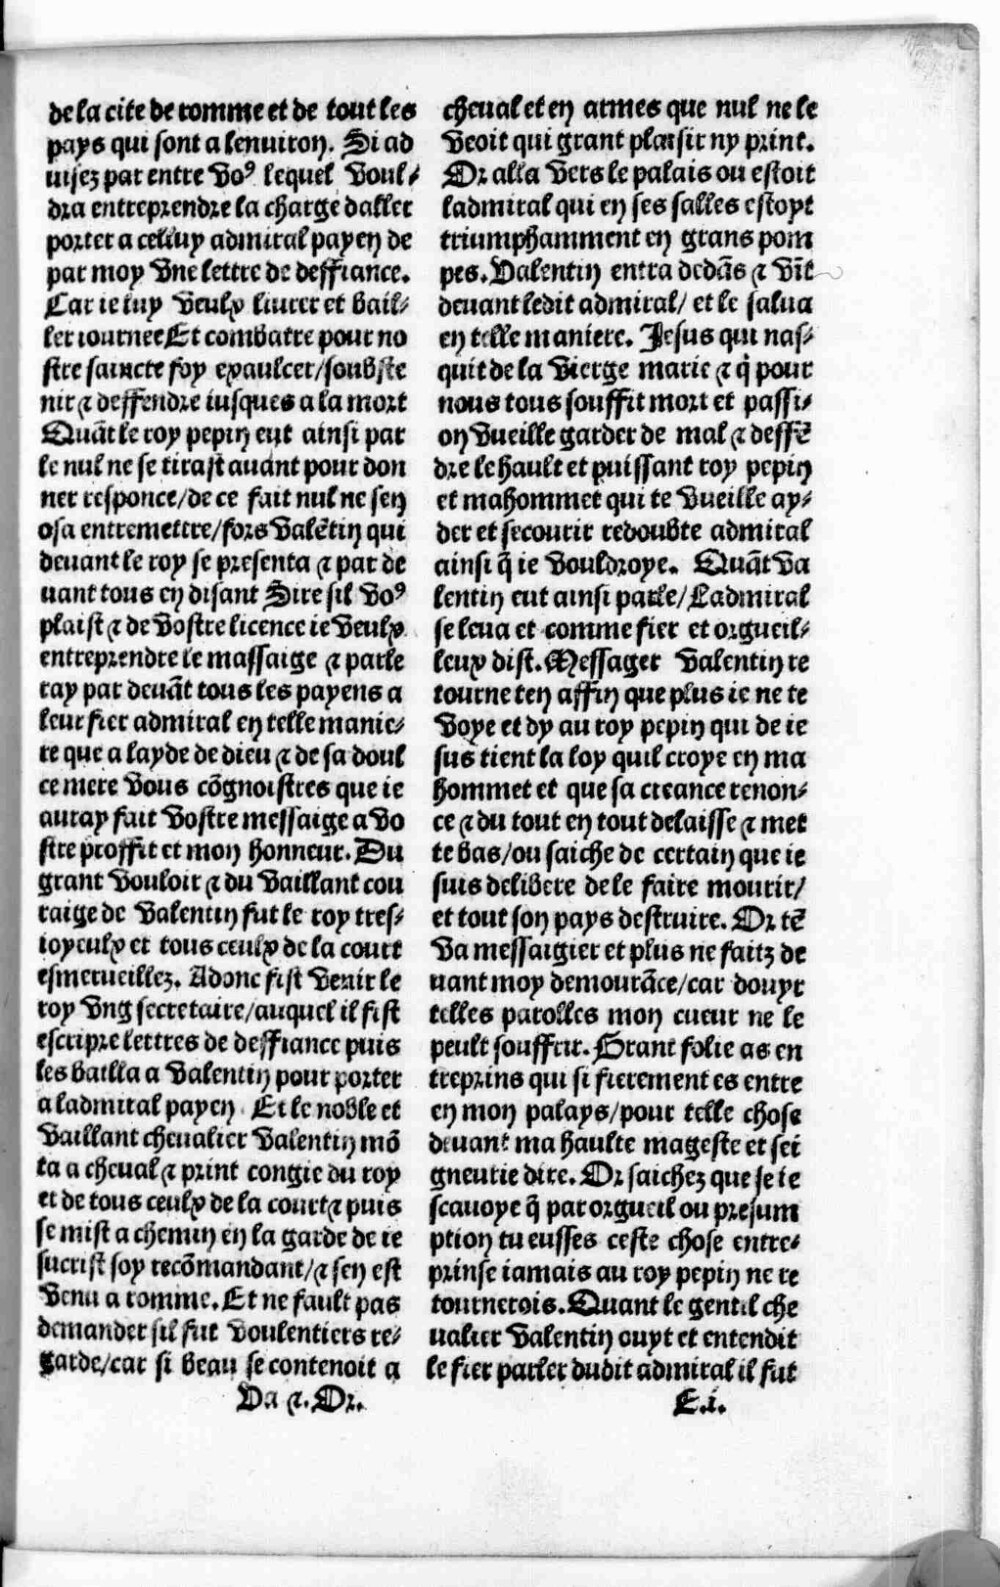 de la cite de romme et de tout les
pays qui sont a lenuiron. Si ad
uisez par entre voꝰ lequel voul-
dra entreprendre la charge daller
porter a celluy admiral payen de
par moy vne lettre de deffiance.
Car ie luy veulx liurer et bail-
ler iournee Et combatre pour no
stre saincte foy exaulcer/soubste
nir ⁊ deffendre iusques a la mort
Quãt le roy pepin eut ainsi par
le nul ne se tirast auant pour don
ner responce/de ce fait nul ne sen
osa entremettre/fors valẽtin qui
deuant le roy se presenta ⁊ par de
uant tous en disant Sire sil voꝰ
plaist ⁊ de vostre licence ie veulx
entreprendre le massaige ⁊ parle
ray par deuãt tous les payens a
leur fier admiral en telle manie-
re que a layde de dieu ⁊ de sa doul
ce mere vous cõgnoistres que ie
auray fait vostre messaige a vo
stre proffit et mon honneur. Du
grant vouloir ⁊ du vaillant cou
raige de valentin fut le roy tres-
ioyeulx et tous ceulx de la court
esmerueillez. Adonc fist venir le
roy vng secretaire/auquel il fist
escripre lettres de deffiance puis
les bailla a valentin pour porter
a ladmiral payen. Et le noble et
vaillant cheualier valentin mõ
ta a cheual ⁊ print congie du roy
et de tous ceulx de la court ⁊ puis
se mist a chemin en la garde de ie
sucrist soy recõmandant/⁊ sen est
venu a romme. Et ne fault pas
demander sil fut voulentiers re-
garde/car si beau se contenoit a
Va ⁊. Or.
cheual et en armes que nul ne le
veoit qui grant plaisir ny print.
Or alla vers le palais ou estoit
ladmiral qui en ses salles estoyt
triumphamment en grans pom
pes. Valentin entra dedãs ⁊ vĩt
deuant ledit admiral/ et le salua
en telle maniere. Jesus qui nas-
quit de la vierge marie ⁊ q̃ pour
nous tous souffit mort et passi-
on vueille garder de mal ⁊ deffẽ
dre le hault et puissant roy pepin
et mahommet qui te vueille ay-
der et secourir redoubte admiral
ainsi q̃ ie vouldroye. Quãt va
lentin eut ainsi parle/Ladmiral
se leua et comme fier et orgueil-
leux dist. Messager valentin re
tourne ten affin que plus ie ne te
voye et dy au roy pepin qui de ie
sus tient la loy quil croye en ma
hommet et que sa creance renon-
ce ⁊ du tout en tout delaisse ⁊ met
te bas/ou saiche de certain que ie
suis delibere de le faire mourir/
et tout son pays destruire. Or tẽ
va messaigier et plus ne faitz de
uant moy demourãce/car douyr
telles parolles mon cueur ne le
peult souffrir. Grant folie as en
treprins qui si fierement es entre
en mon palays/pour telle chose
deuant ma haulte mageste et sei
gneurie dire. Or saichez que se ie
scauoye q̃ par orgueil ou presum
ption tu eusses ceste chose entre-
prinse iamais au roy pepin ne re
tournerois. Quant le gentil che
ualier valentin ouyt et entendit
le fier parler dudit admiral il fut
E.i.